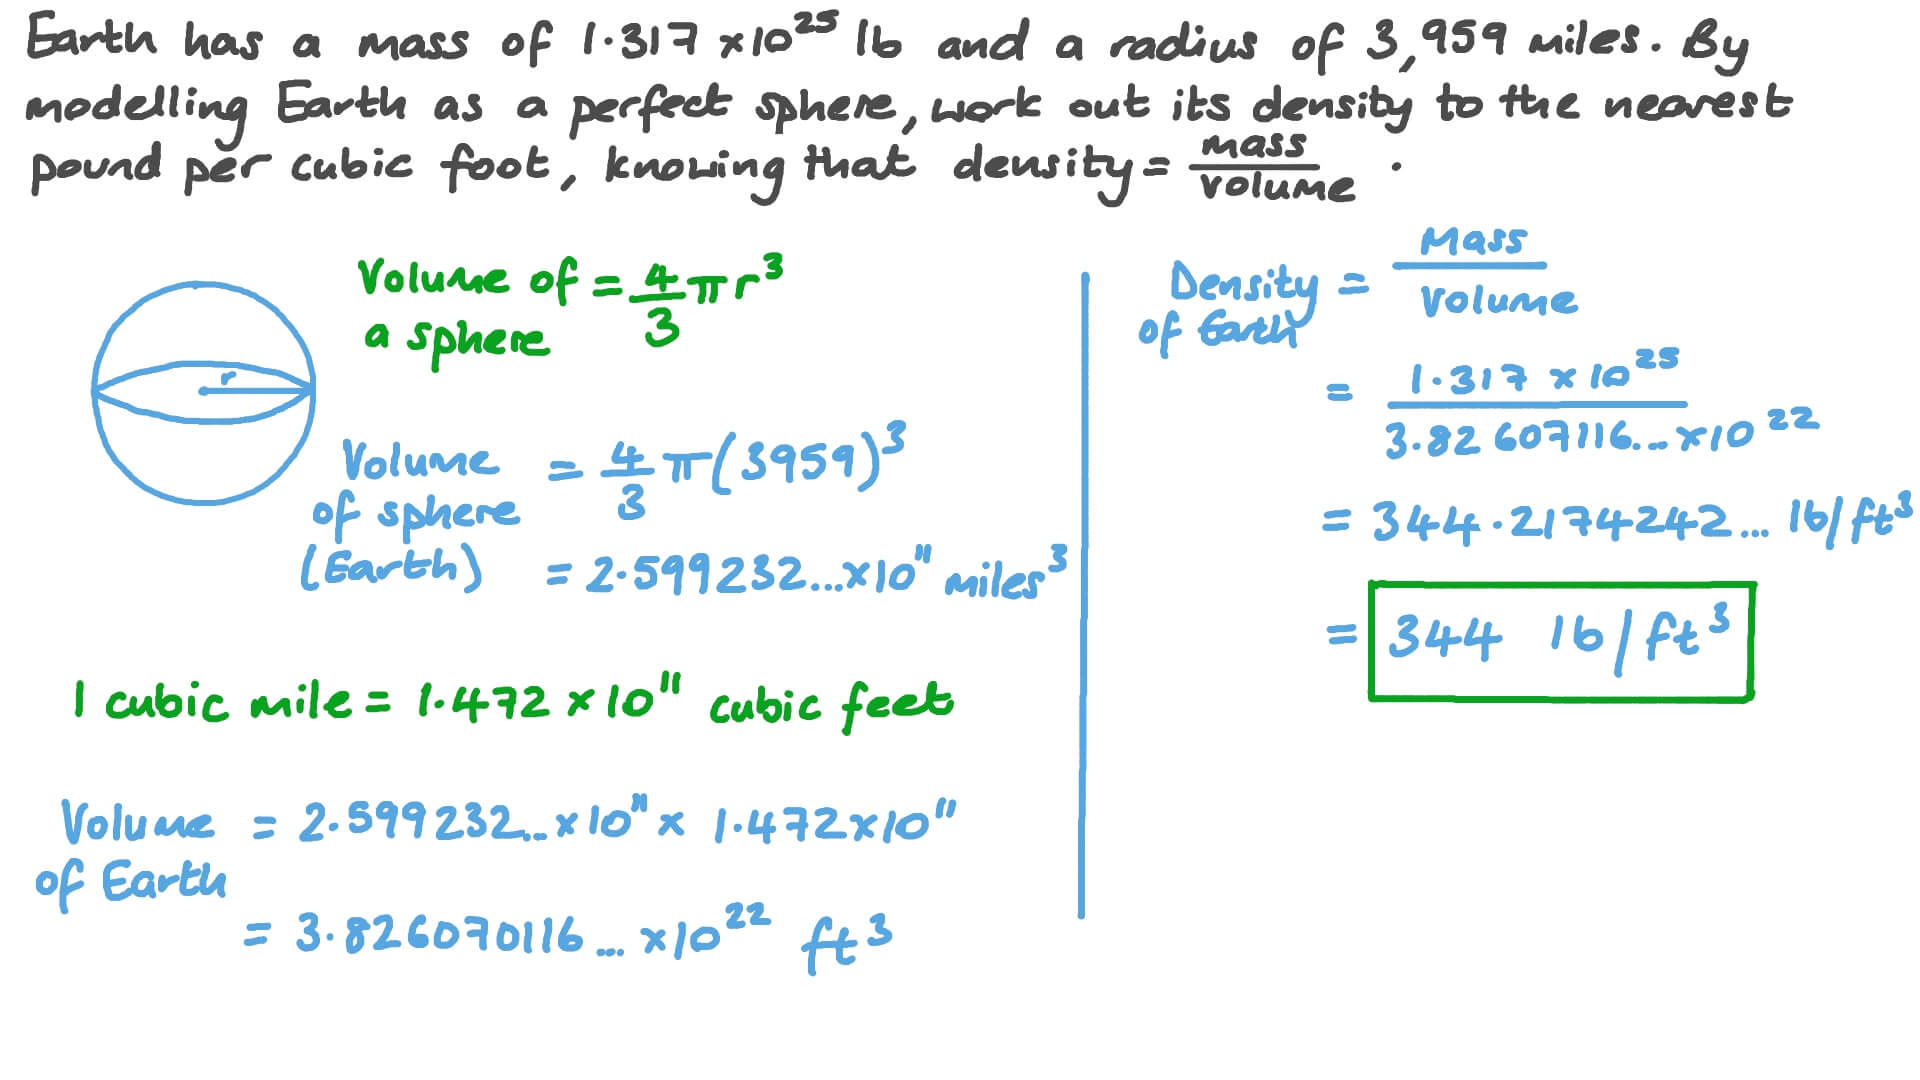 Earth has a mass of 1.317 ×10²⁵ lb and a radius of 3,959 miles. By
modelling Earth as a perfect sphere, work out its density to the nearest
pound per cubic foot, knowing that density = mass/volume .
Volume of = 4/3 πr³
a sphere
r
Volume = 4/3 π(3959)³
of sphere
(Earth) = 2.599232...×10¹¹ miles³
1 cubic mile = 1.472 ×10¹¹ cubic feet
Volume = 2.599232...×10¹¹ × 1.472×10¹¹
of Earth
= 3.826070116... ×10²² ft³
Density = Mass/Volume
of Earth
= 1.317 ×10²⁵/3.82607116...×10²²
= 344.2174242... lb/ft³
= 344 lb/ft³